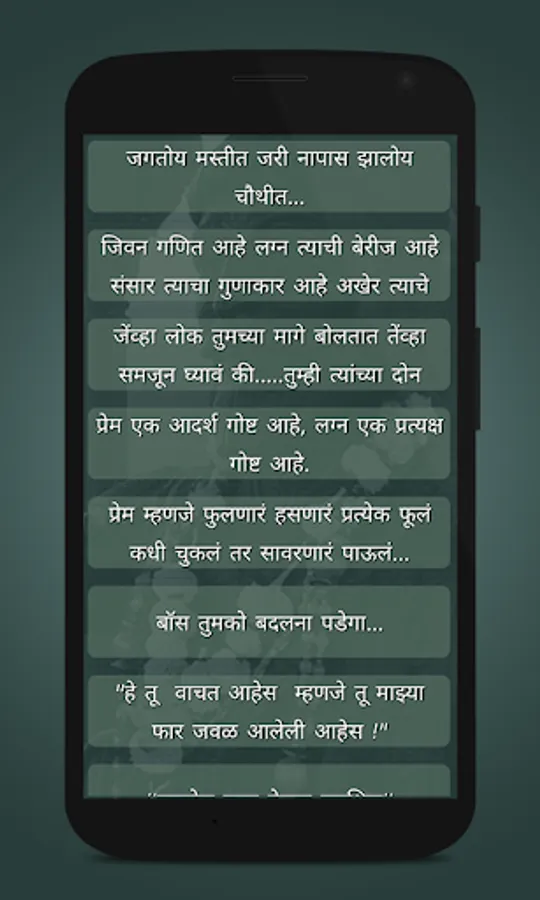 जगतोय मस्तीत जरी नापास झालोय
चौथीत...
जिवन गणित आहे लग्न त्याची बेरीज आहे
संसार त्याचा गुणाकार आहे अखेर त्याचे
जेंव्हा लोक तुमच्या मागे बोलतात तेंव्हा
समजून घ्यावं की.....तुम्ही त्यांच्या दोन
प्रेम एक आदर्श गोष्ट आहे, लग्न एक प्रत्यक्ष
गोष्ट आहे.
प्रेम म्हणजे फुलणारं हसणारं प्रत्येक फूलं
कधी चुकलं तर सावरणारं पाऊलं...
बॉस तुमको बदलना पडेगा...
"हे तू वाचत आहेस म्हणजे तू माझ्या
फार जवळ आलेली आहेस !"